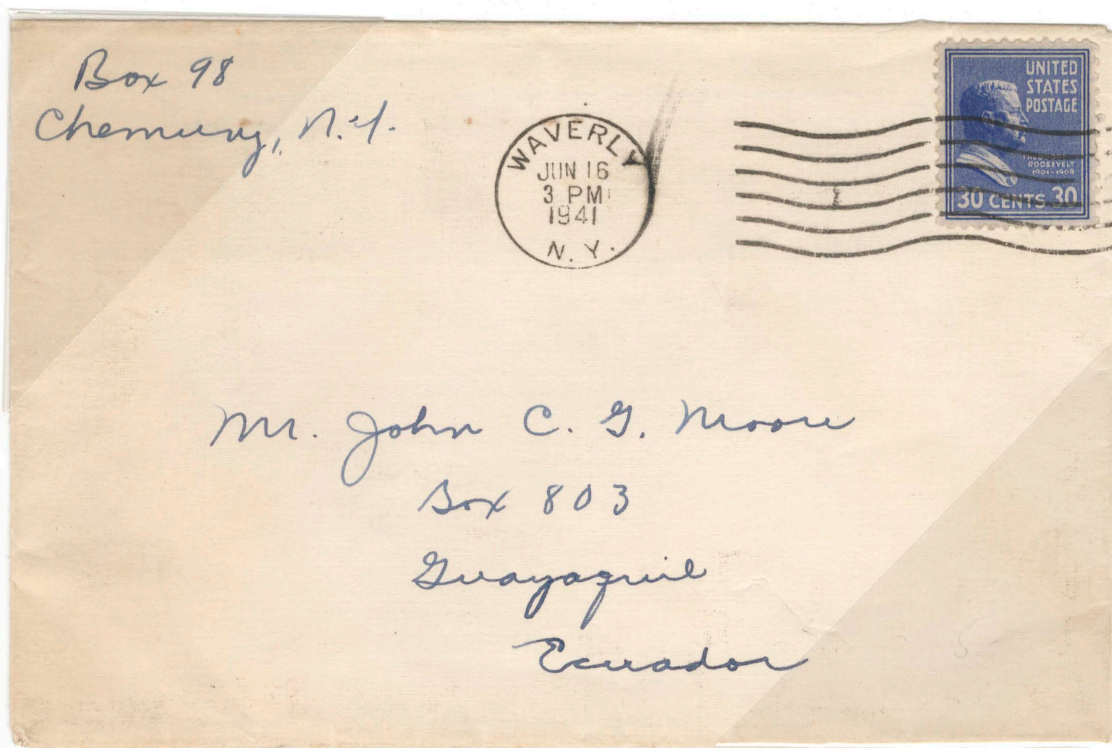 Box 98
Chemung, N.Y.
WAVERLY
JUN 16
3 PM
1941
N. Y.
UNITED
STATES
POSTAGE
THEODORE
ROOSEVELT
1901-1909
30 CENTS 30
Mr. John C. G. Moore
Box 803
Guayaquil
Ecuador